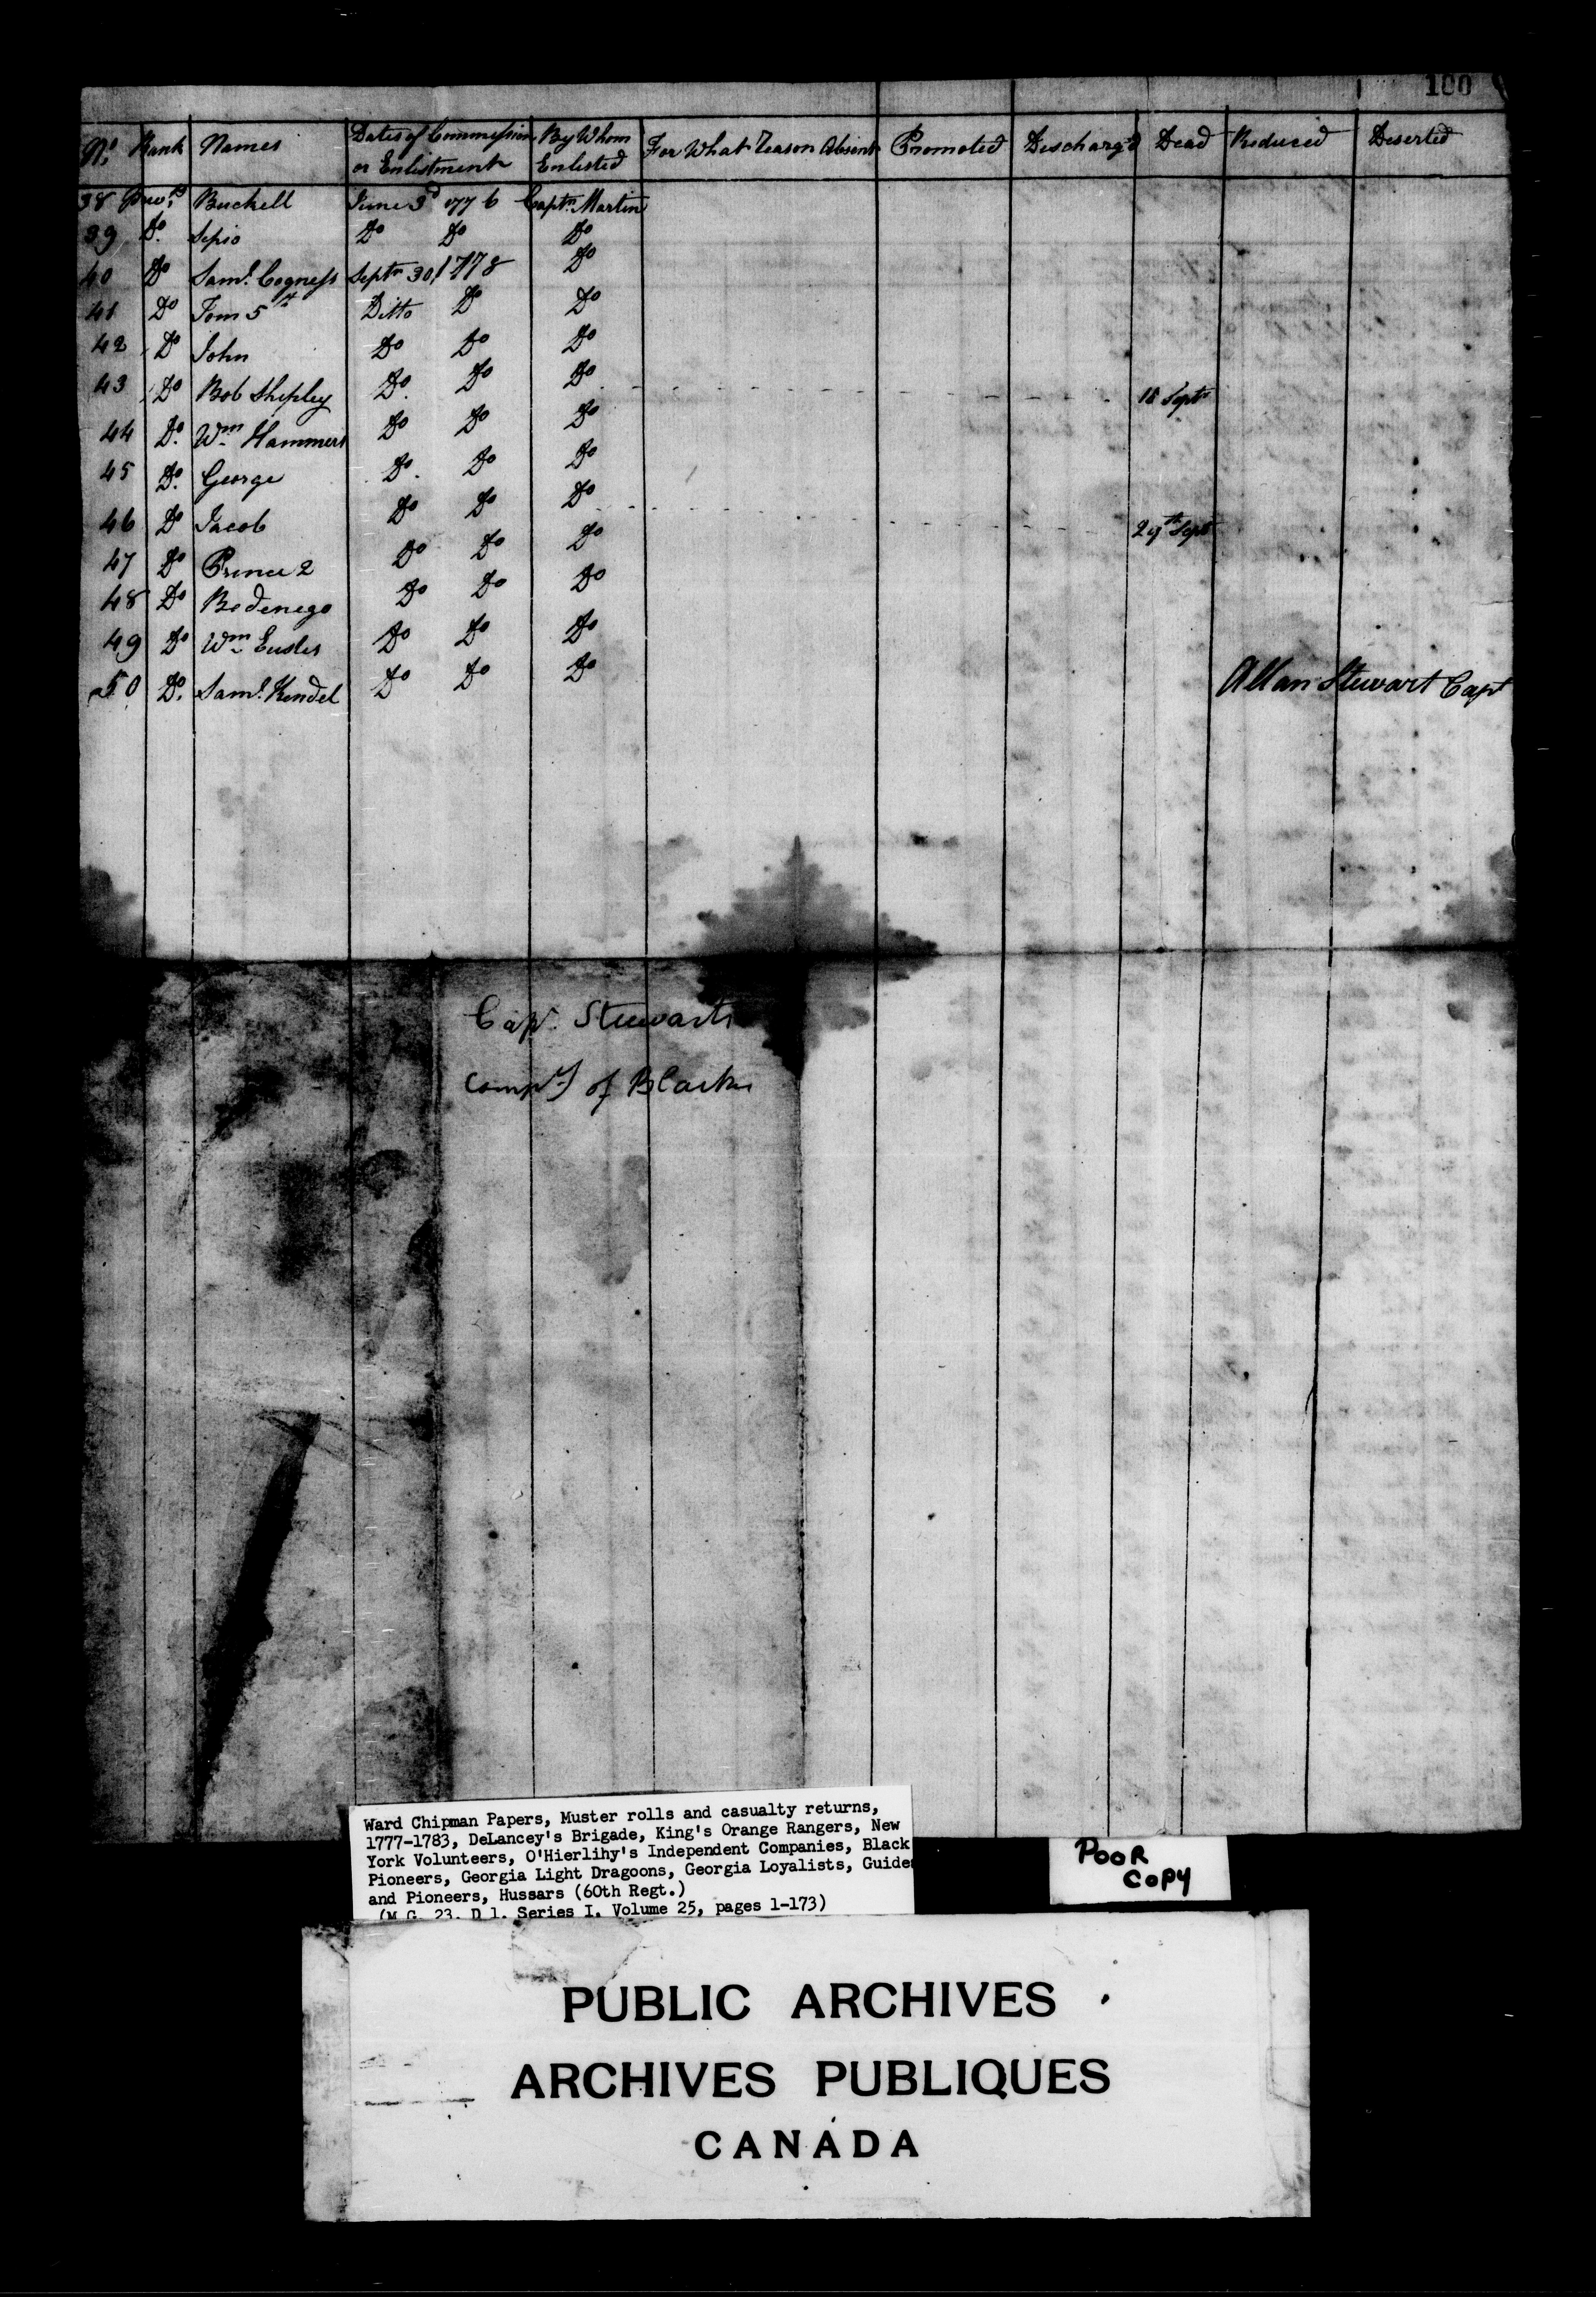 100
No. Rank Names Dates of Commission or Enlistment By Whom Enlisted For What Reason Absent Promoted Discharg'd Dead Reduced Deserted
38 Priv.ts Buckell June 3d 1776 Captn. Martin
39 Do. Sepio Do Do Do
40 Do Saml. Cogness Septr 30 1778 Do
41 Do Tom 5th Ditto Do Do
42 Do John Do Do Do
43 Do Bob Shipley Do. Do Do 18 Septr
44 Do. Wm Hammers Do Do Do
45 Do. George Do. Do Do
46 Do Jacob Do Do Do 29th Sept
47 Do Prince 2 Do Do Do
48 Do Bedenego Do Do Do
49 Do Wm Eusler Do Do Do
50 Do. Saml. Kendel Do Do Do
Allan Stewart Capt
Capt. Stewarts
Compy of Blacks
Ward Chipman Papers, Muster rolls and casualty returns,
1777-1783, DeLancey's Brigade, King's Orange Rangers, New
York Volunteers, O'Hierlihy's Independent Companies, Black
Pioneers, Georgia Light Dragoons, Georgia Loyalists, Guides
and Pioneers, Hussars (60th Regt.)
(M.G. 23, D 1, Series I, Volume 25, pages 1-173)
POOR
COPY
PUBLIC ARCHIVES
ARCHIVES PUBLIQUES
CANADA